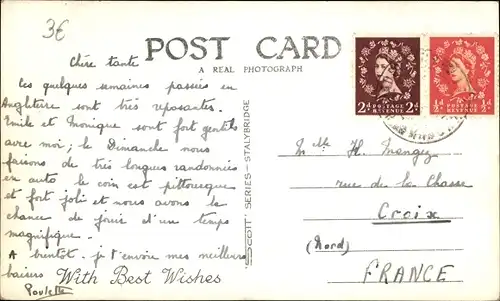 3€
POST CARD
A REAL PHOTOGRAPH
Chère tante
Les quelques semaines passées en
Angleterre sont très reposantes.
Emile et Monique sont fort gentils
avec moi ; le Dimanche nous
faisons de très longues randonnées
en auto le coin est pittoresque
et fort joli et nous avons la
chance de jouir d'un temps
magnifique.
A bientôt. je t'envoie mes meilleurs
baisers
Paulette
With Best Wishes
SCOTT' SERIES - STALYBRIDGE
2d POSTAGE REVENUE 2d
½d POSTAGE REVENUE ½d
H. Mangez
rue de la Chasse
Croix
(Nord)
FRANCE